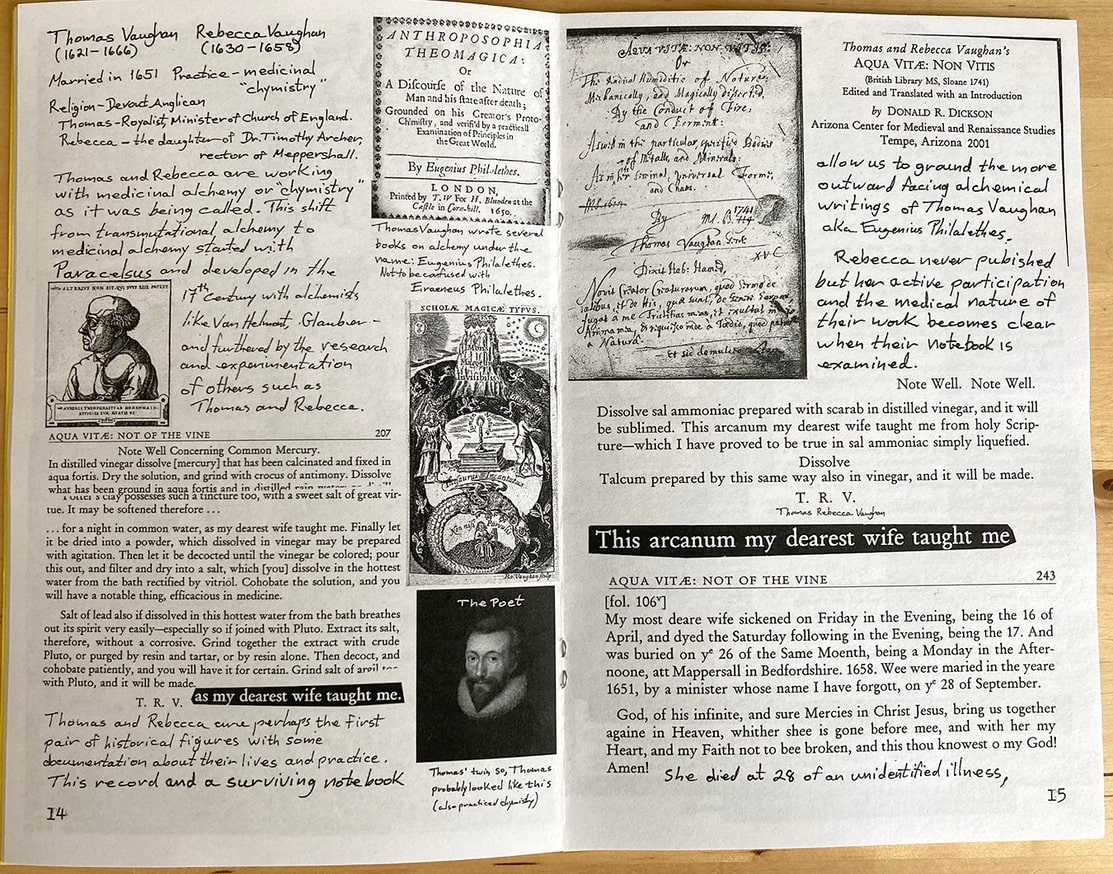 Thomas Vaughan Rebecca Vaughan
(1621–1666) (1630–1658)
Married in 1651 Practice – medicinal
"chymistry"
Religion – Devout Anglican
Thomas – Royalist, Minister of Church of England.
Rebecca – the daughter of Dr. Timothy Archer,
rector of Meppershall.
Thomas and Rebecca are working
with medicinal alchemy or "chymistry"
as it was being called. This shift
from transmutational alchemy to
medicinal alchemy started with
Paracelsus and developed in the
17th century with alchemists
like Van Helmont, Glauber –
and furthered by the research
and experimentation
of others such as
Thomas and Rebecca.
ALTERIUS NON SIT QUI SUUS ESSE POTEST
AQUA VITÆ: NOT OF THE VINE 207
Note Well Concerning Common Mercury.
In distilled vinegar dissolve [mercury] that has been calcinated and fixed in
aqua fortis. Dry the solution, and grind with crocus of antimony. Dissolve
what has been ground in aqua fortis and in distilled rain
Potter's clay possesses such a tincture too, with a sweet salt of great vir-
tue. It may be softened therefore ...
... for a night in common water, as my dearest wife taught me. Finally let
it be dried into a powder, which dissolved in vinegar may be prepared
with agitation. Then let it be decocted until the vinegar be colored; pour
this out, and filter and dry into a salt, which [you] dissolve in the hottest
water from the bath rectified by vitriol. Cohobate the solution, and you
will have a notable thing, efficacious in medicine.
Salt of lead also if dissolved in this hottest water from the bath breathes
out its spirit very easily—especially so if joined with Pluto. Extract its salt,
therefore, without a corrosive. Grind together the extract with crude
Pluto, or purged by resin and tartar, or by resin alone. Then decoct, and
cohobate patiently, and you will have it for certain. Grind salt of
with Pluto, and it will be made.
T. R. V. as my dearest wife taught me.
Thomas and Rebecca are perhaps the first
pair of historical figures with some
documentation about their lives and practice.
This record and a surviving notebook
14
ANTHROPOSOPHIA
THEOMAGICA:
Or
A Discourse of the Nature of
Man and his state after death;
Grounded on his Creator's Proto-
Chimistry, and verifi'd by a practicall
Examination of Principles in
the Great World.
By Eugenius Philalethes.
LONDON,
Printed by T. W for H. Blunden at the
Castle in Corn-hill. 1650.
Thomas Vaughan wrote several
books on alchemy under the
name: Eugenius Philalethes.
Not to be confused with
Eraeneus Philalethes.
SCHOLÆ MAGICÆ TYPVS.
Mons
Magorum
Invisibilis
Thesaurus Incantatus
Ro. Vaughan sculp.
The Poet
Thomas' twin so, Thomas
probably looked like this
(also practiced chymistry)
AQVA VITÆ: NON VITIS:
Or
The Radical Humiditie of Nature:
Mechanically, and Magically dissected,
By the Conduct of Fire,
and Ferment:
As well in the particular, specified Bodies
of Metalls, and Minerals:
As in her seminal, universal Forms,
and Chaos.
By
1741
Thomas Vaughan Gent.
XVC
Dixit Hab: Hamed,
Novit Creator Creaturarum, quod sermo de
à Natura.
Et sic demulce
Thomas and Rebecca Vaughan's
AQUA VITÆ: NON VITIS
(British Library MS, Sloane 1741)
Edited and Translated with an Introduction
by DONALD R. DICKSON
Arizona Center for Medieval and Renaissance Studies
Tempe, Arizona 2001
allow us to ground the more
outward facing alchemical
writings of Thomas Vaughan
aka Eugenius Philalethes.
Rebecca never pubished
but her active participation
and the medical nature of
their work becomes clear
when their notebook is
examined.
Note Well. Note Well.
Dissolve sal ammoniac prepared with scarab in distilled vinegar, and it will
be sublimed. This arcanum my dearest wife taught me from holy Scrip-
ture—which I have proved to be true in sal ammoniac simply liquefied.
Dissolve
Talcum prepared by this same way also in vinegar, and it will be made.
T. R. V.
Thomas Rebecca Vaughan
This arcanum my dearest wife taught me
AQUA VITÆ: NOT OF THE VINE 243
[fol. 106v]
My most deare wife sickened on Friday in the Evening, being the 16 of
April, and dyed the Saturday following in the Evening, being the 17. And
was buried on ye 26 of the Same Moenth, being a Monday in the After-
noone, att Mappersall in Bedfordshire. 1658. Wee were maried in the yeare
1651, by a minister whose name I have forgott, on ye 28 of September.
God, of his infinite, and sure Mercies in Christ Jesus, bring us together
againe in Heaven, whither shee is gone before mee, and with her my
Heart, and my Faith not to bee broken, and this thou knowest o my God!
Amen! She died at 28 of an unidentified illness,
15